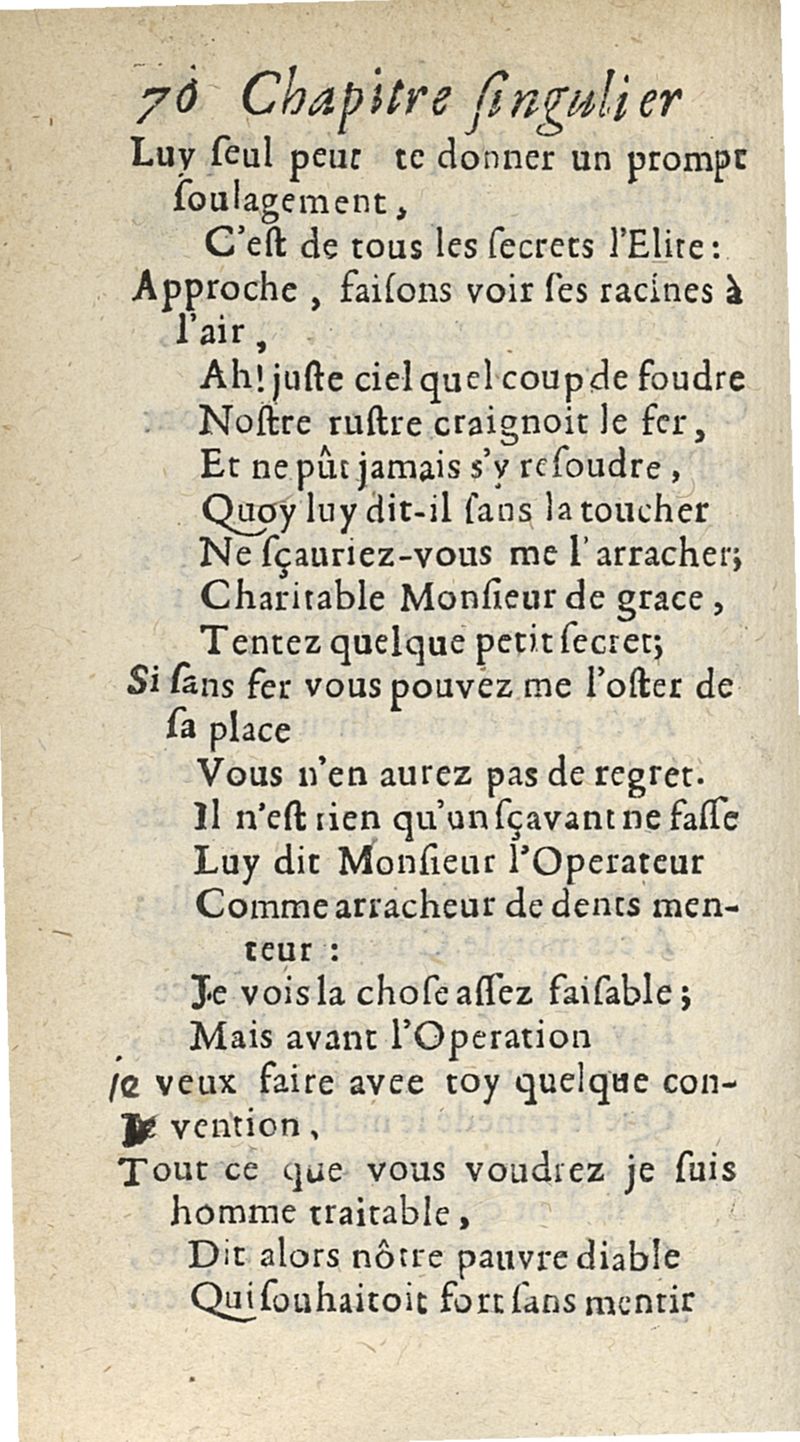 70 Chapitre ſingulier
Luy ſeul peut te donner un prompt
ſoulagement,
C'eſt de tous les ſecrets l'Elite:
Approche, faiſons voir ſes racines à
l'air,
Ah! juſte ciel quel coup de foudre
Noſtre ruſtre craignoit le fer,
Et ne pût jamais s'y reſoudre,
Quoy luy dit-il ſans la toucher
Ne ſçauriez-vous me l'arracher;
Charitable Monſieur de grace,
Tentez quelque petit ſecret;
Si ſans fer vous pouvez me l'oſter de
ſa place
Vous n'en aurez pas de regret.
Il n'eſt rien qu'un ſçavant ne faſſe
Luy dit Monſieur l'Operateur
Comme arracheur de dents men-
teur :
Je vois la choſe aſſez faiſable;
Mais avant l'Operation
je veux faire avee toy quelque con-
vention,
Tout ce que vous voudrez je ſuis
homme traitable,
Dit alors nôtre pauvre diable
Qui ſouhaitoit fort ſans mentir